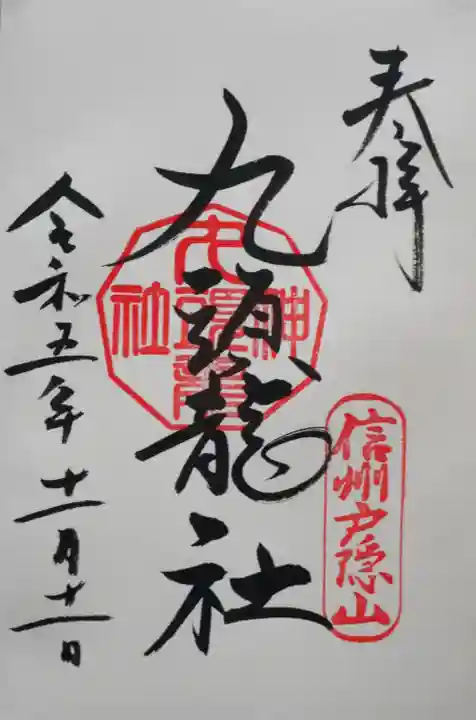 奉拝
信州戸隠山
九頭龍社
九頭龍
神
社
令和五年十一月十一日